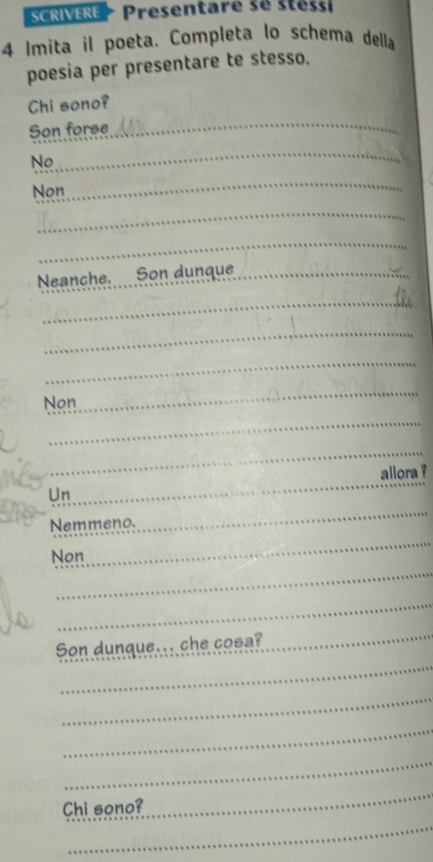 SCRIVERE Presentare se stessi
4 Imita il poeta. Completa lo schema della
poesia per presentare te stesso.
Chi sono?
Son forse
No
Non
Neanche. Son dunque
Non
allora?
Un
Nemmeno.
Non
Son dunque... che cosa?
Chi sono?